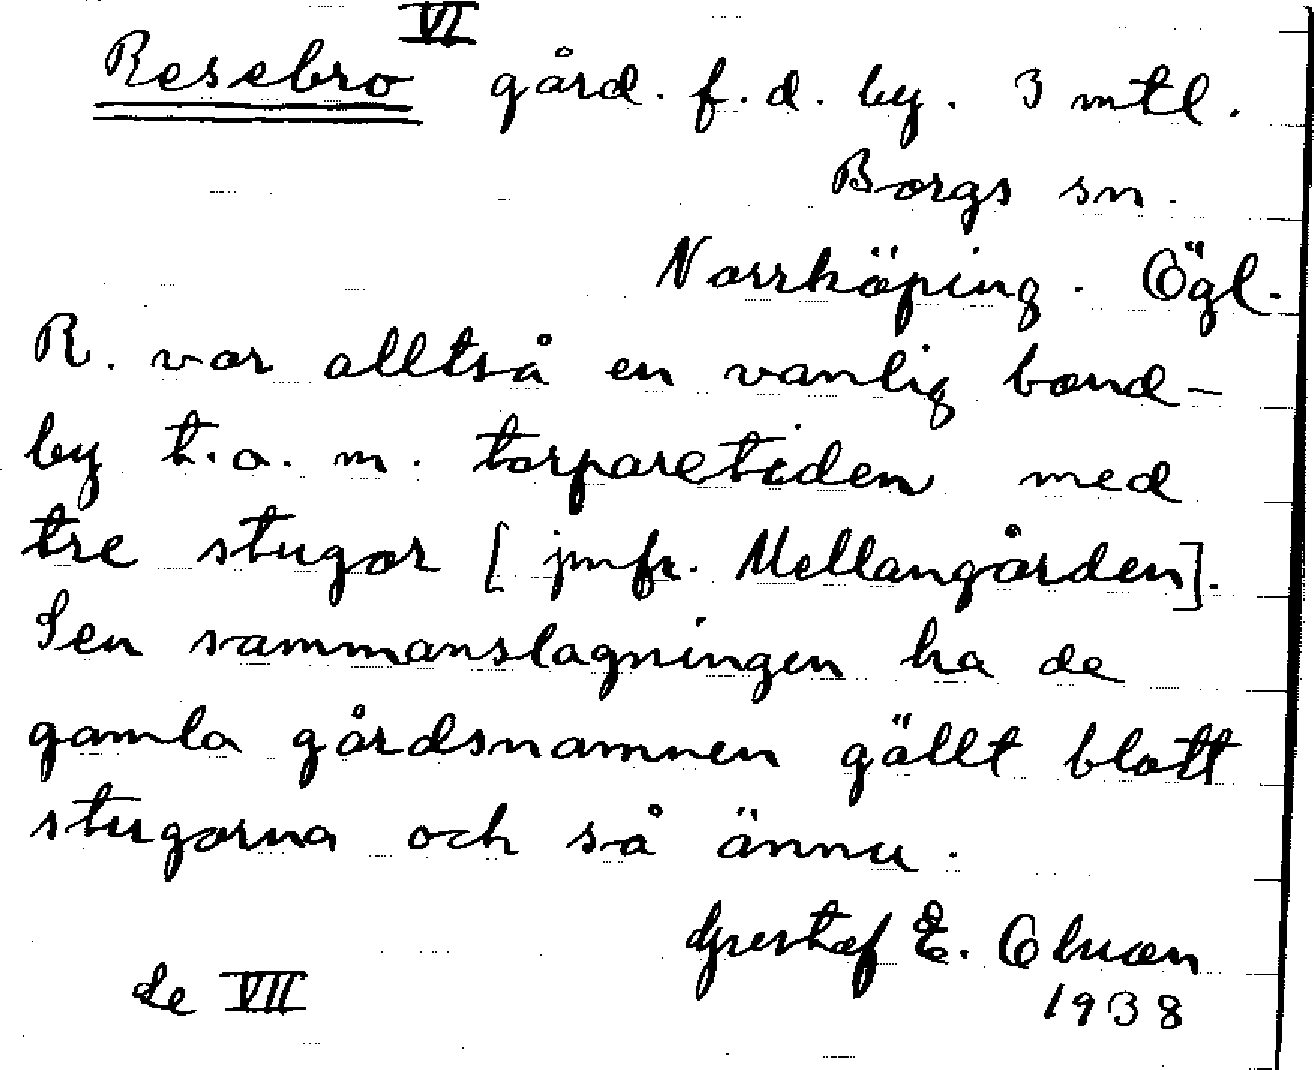 VI
Resebro gård. f. d. by. 3 mtl.
Borgs sn.
Norrköping. Ögl.
R. var alltså en vanlig bond-
by t. o. m. torparetiden med
tre stugor [ jmfr. Mellangården].
Sen sammanslagningen ha de
gamla gårdsnamnen gällt blott
stugorna och så ännu.
Gustaf E.
1938
Se VII